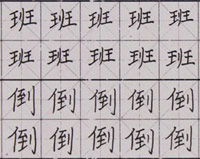 班班班班班
班班班班班
倒倒倒倒倒
倒倒倒倒倒